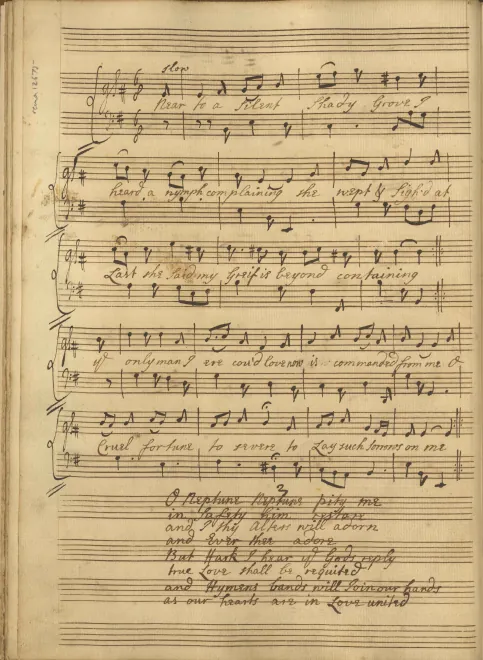 slow
Near to a Silent Shady Grove I
heard a nymph complaining she wept & Sigh'd at
Last she Said my Greif is beyond containing
ye only man I ere could love now is commanded from me O
Cruel fortune to severe to Lay such on me
2
O Neptune Neptune pity me
in Safety him
and I thy Alters will adorn
and Ever thee adore
But Hark I hear ye Gods reply
true Love shall be requited
and Hymens bands will Join our hands
as our hearts are in Love united